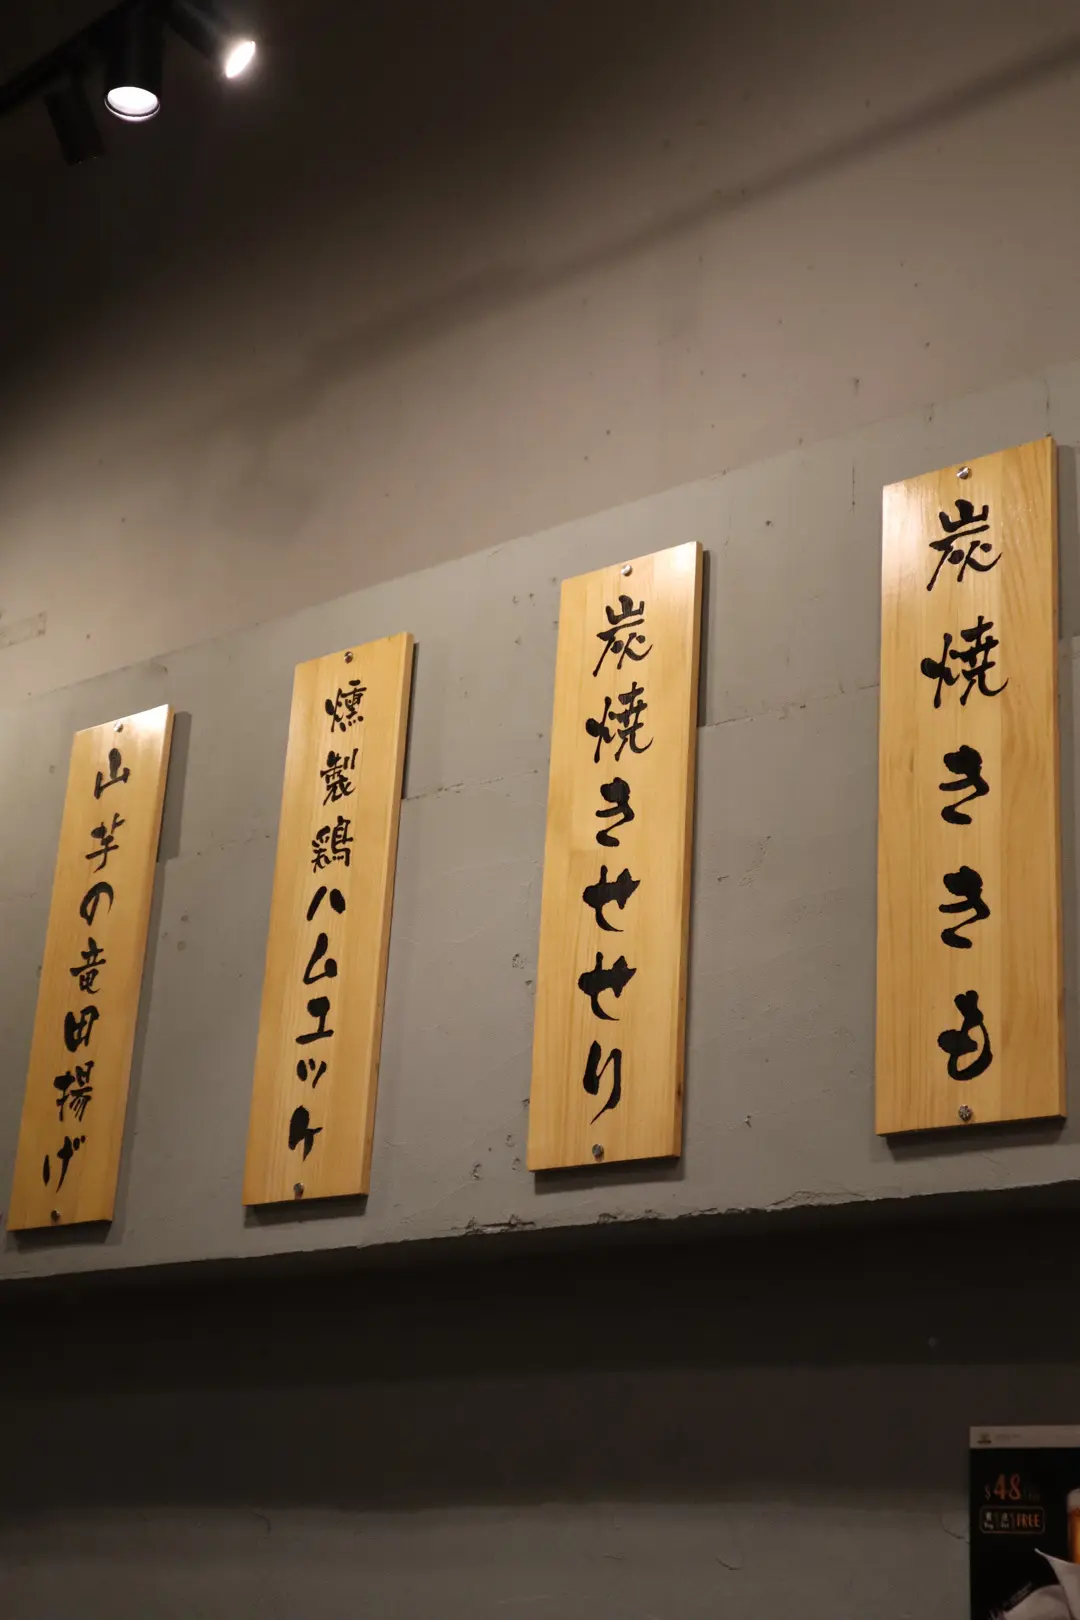 炭焼ききも
炭焼きせせり
燻製鶏ハムエッケ
山芋の竜田揚げ
$48
FREE